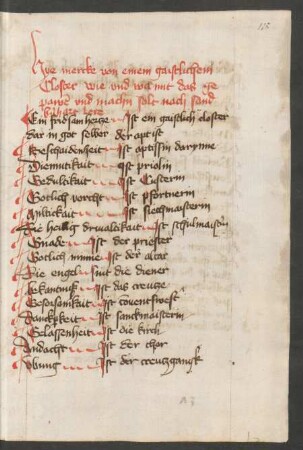 Hye mercke von einem gaistlichsem
Closter wie und wa mit das
und machn solt nach sand
lere
Ein fridsam hercze Ist ein gaistlich closter
dar in got selber der apt ist
Beschaidenheit Ist aptissin darynne
Diemutikait Ist priolin
Gedultikait Ist Custerin
Gotlich vorcht Ist pfortnerin
Miltickait Ist siechmaisterin
Die heilig drivaltikait Ist schulmaistrin
Gnade Ist der priester
Gotlich minne Ist der altar
Die engel sint die diener
Bekantnuß Ist das creucze
Gehorsamkait Ist coventswest
Danckperkeit Ist sanckmaisterin
Gelassenheit Ist die kirch
Andacht Ist der chor
Ubung Ist der creutzgangk